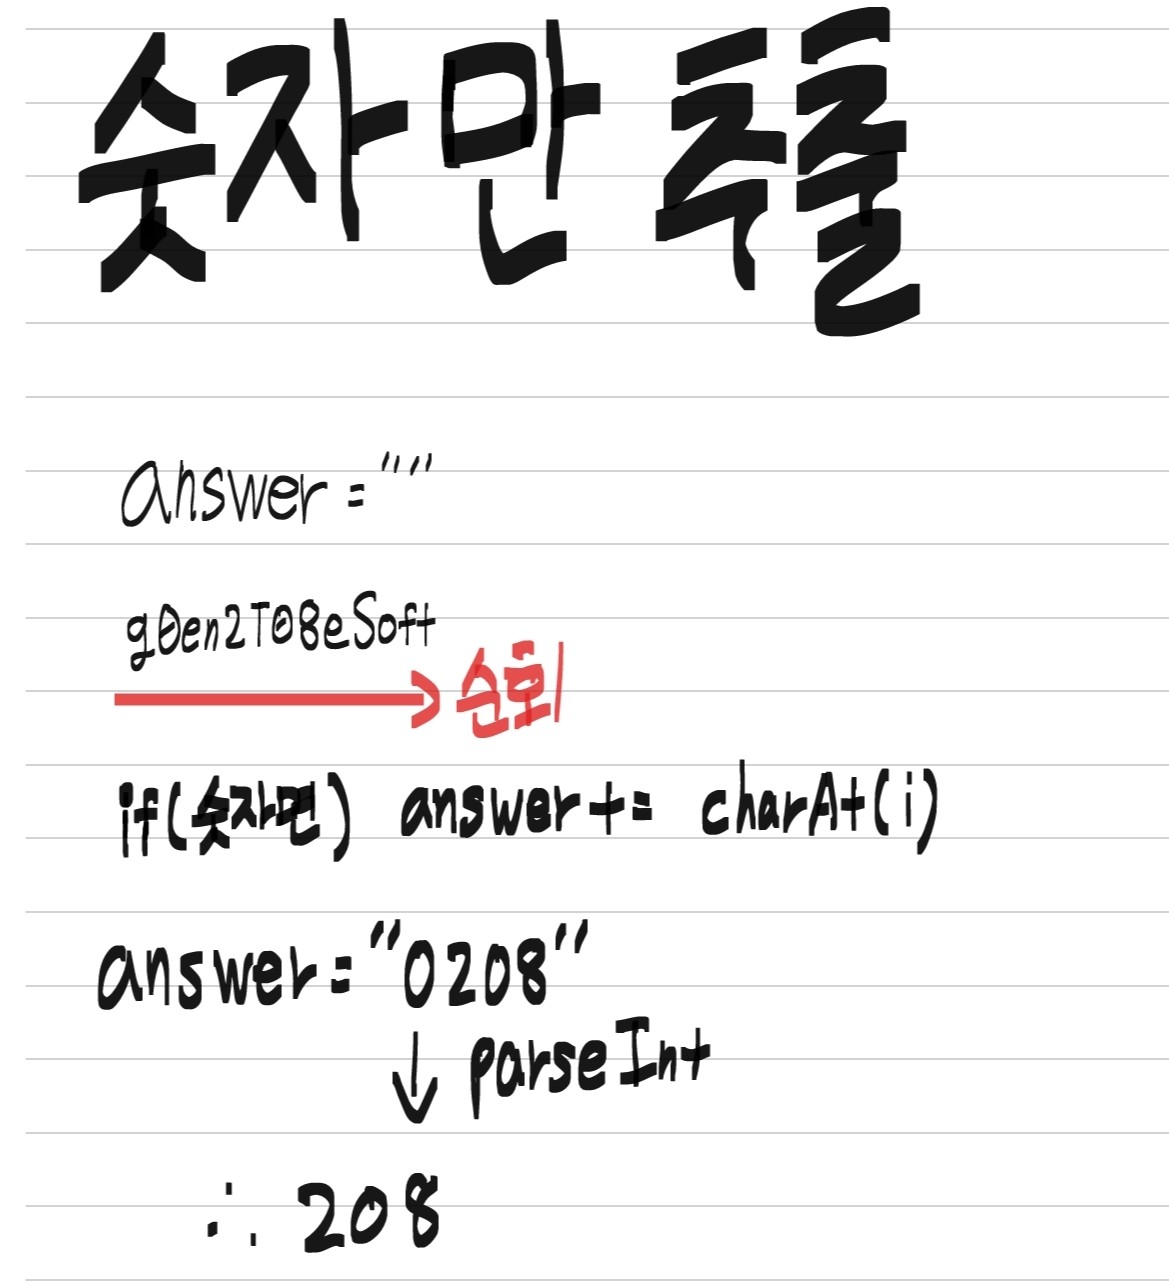 숫자만 추출
answer = ""
g0en2T08eSoft
순회
if(숫자면) answer += charAt(i)
answer = "0208"
↓ parseInt
∴ 208